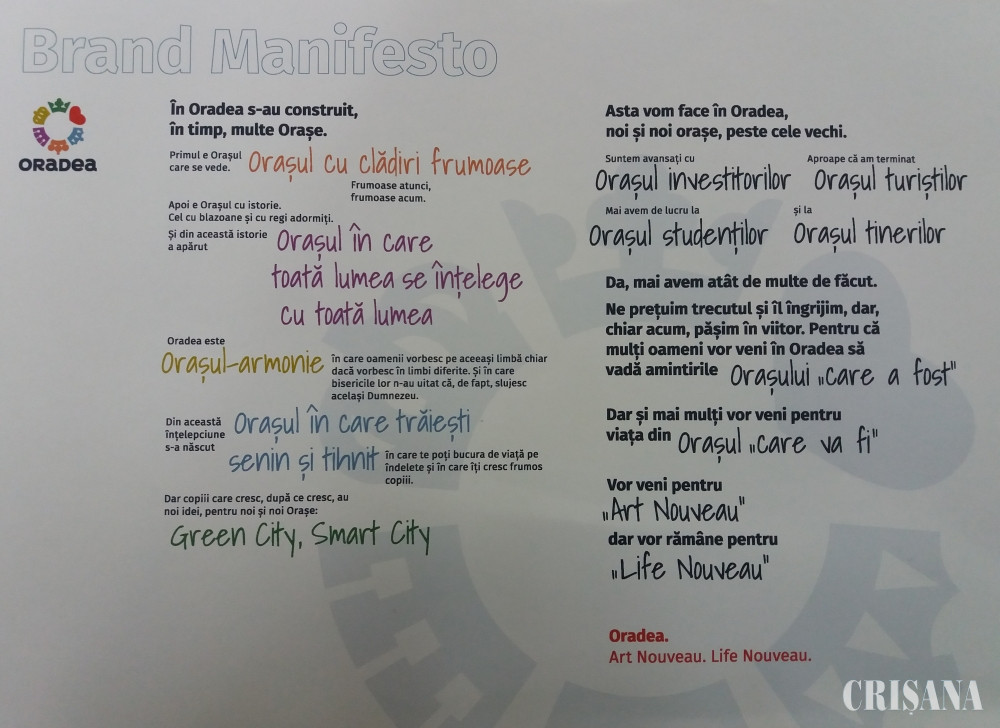 Brand Manifesto
ORADEA
În Oradea s-au construit,
în timp, multe Orașe.
Primul e Orașul
care se vede.
Orașul cu clădiri frumoase
Frumoase atunci,
frumoase acum.
Apoi e Orașul cu istorie.
Cel cu blazoane și cu regi adormiți.
Și din această istorie
a apărut
Orașul în care
toată lumea se înțelege
cu toată lumea
Oradea este
Orașul-armonie
în care oamenii vorbesc pe aceeași limbă chiar
dacă vorbesc în limbi diferite. Și în care
bisericile lor n-au uitat că, de fapt, slujesc
același Dumnezeu.
Din această
înțelepciune
s-a născut
Orașul în care trăiești
senin și tihnit
în care te poți bucura de viață pe
îndelete și în care îți cresc frumos
copiii.
Dar copiii care cresc, după ce cresc, au
noi idei, pentru noi și noi Orașe:
Green City, Smart City
Asta vom face în Oradea,
noi și noi orașe, peste cele vechi.
Suntem avansați cu
Orașul investitorilor
Aproape că am terminat
Orașul turiștilor
Mai avem de lucru la
Orașul studenților
și la
Orașul tinerilor
Da, mai avem atât de multe de făcut.
Ne prețuim trecutul și îl îngrijim, dar,
chiar acum, pășim în viitor. Pentru că
mulți oameni vor veni în Oradea să
vadă amintirile Orașului „care a fost"
Dar și mai mulți vor veni pentru
viața din Orașul „care va fi"
Vor veni pentru
„Art Nouveau"
dar vor rămâne pentru
„Life Nouveau"
Oradea.
Art Nouveau. Life Nouveau.
CRIȘANA